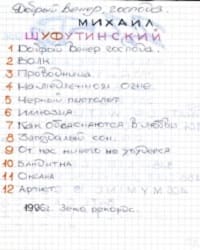 Добрый вечер, господа.
МИХАИЛ
ШУФУТИНСКИЙ
1 Добрый Вечер господа.
2 Волк
3 Проводница.
4 На медленном огне.
5 Чёрный пистолет
6 Иллюзия
7 Как объясняются в любви
8 Запоздалый сон.
9 От нас ничего не убудет
10 Бандитка
11 Оксана
12 Артист
1996г. Зеко рекордс.